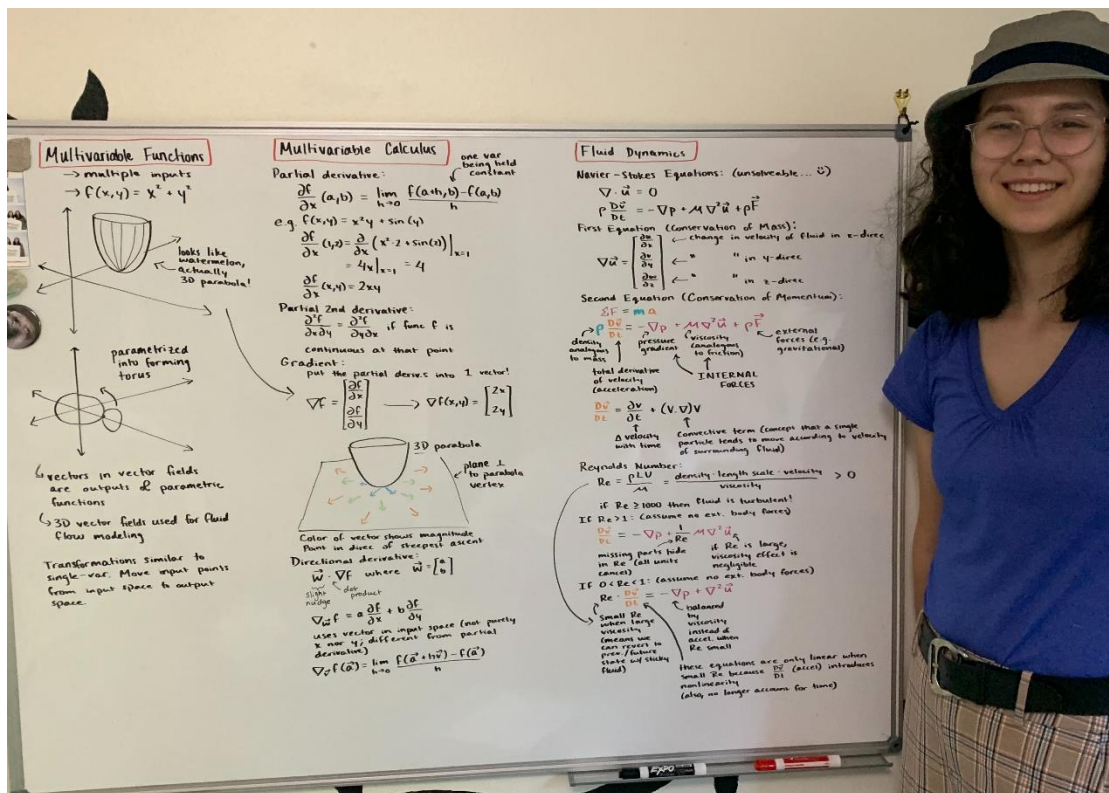 Multivariable Functions
→ multiple inputs
→ f(x,y) = x² + y²
looks like
watermelon,
actually
3D parabola!
parametrized
into forming
torus
↳ vectors in vector fields
are outputs of parametric
functions
↳ 3D vector fields used for fluid
flow modeling
Transformations similar to
single-var. Move input points
from input space to output
space.
Multivariable Calculus
one var
being held
constant
Partial derivative:
∂f/∂x (a,b) = lim h→0 f(a+h,b)-f(a,b)/h
e.g. f(x,y) = x²y + sin(y)
∂f/∂x (1,2) = ∂/∂x (x²·2 + sin(2))|x=1
= 4x|x=1 = 4
∂f/∂x (x,y) = 2xy
Partial 2nd derivative:
∂²f/∂x∂y = ∂²f/∂y∂x if func f is
continuous at that point
Gradient:
put the partial derivs into 1 vector!
∇f = [∂f/∂x ∂f/∂y] → ∇f(x,y) = [2x 2y]
3D parabola
plane ⊥
to parabola
vertex
Color of vector shows magnitude
Point in direc of steepest ascent
Directional derivative:
w⃗ · ∇f where w⃗ = [a b]
slight
nudge
dot
product
∇w⃗ f = a ∂f/∂x + b ∂f/∂y
uses vector in input space (not purely
x nor y; different from partial
derivative)
∇v⃗ f(a⃗) = lim h→0 f(a⃗+hv⃗) - f(a⃗)/h
Fluid Dynamics
Navier-Stokes Equations: (unsolveable... ☺)
∇ · u⃗ = 0
ρ Du⃗/Dt = -∇p + μ∇²u⃗ + ρF⃗
First Equation (Conservation of Mass):
∇u⃗ = [∂u/∂x ← change in velocity of fluid in x-direc
∂v/∂y ← " " in y-direc
∂w/∂z] ← " " in z-direc
Second Equation (Conservation of Momentum):
ΣF = ma
ρ Du⃗/Dt = -∇p + μ∇²u⃗ + ρF⃗
density
analogous
to mass
pressure
gradient
viscosity
(analogous
to friction)
external
forces (e.g.
gravitational)
INTERNAL
FORCES
total derivative
of velocity
(acceleration)
Dv⃗/Dt = ∂v/∂t + (V·∇)V
Δ velocity
with time
Convective term (concept that a single
particle tends to move according to velocity
of surrounding fluid)
Reynolds Number:
Re = ρLV/μ = density·length scale·velocity/viscosity > 0
if Re ≥ 1000 then fluid is turbulent!
If Re > 1: (assume no ext. body forces)
Dv⃗/Dt = -∇p + 1/Re μ∇²u⃗
missing parts hide
in Re (all units
cancel)
if Re is large,
viscosity effect is
negligible
If 0 < Re < 1: (assume no ext. body forces)
Re · Dv⃗/Dt = -∇p + ∇²u⃗
Small Re
when large
viscosity
(means we
can revert to
prev./future
state w/ sticky
fluid)
balanced
by
viscosity
instead of
accel. when
Re small
these equations are only linear when
small Re because Dv⃗/Dt (accel) introduces
nonlinearity
(also, no longer accounts for time)
EXPO